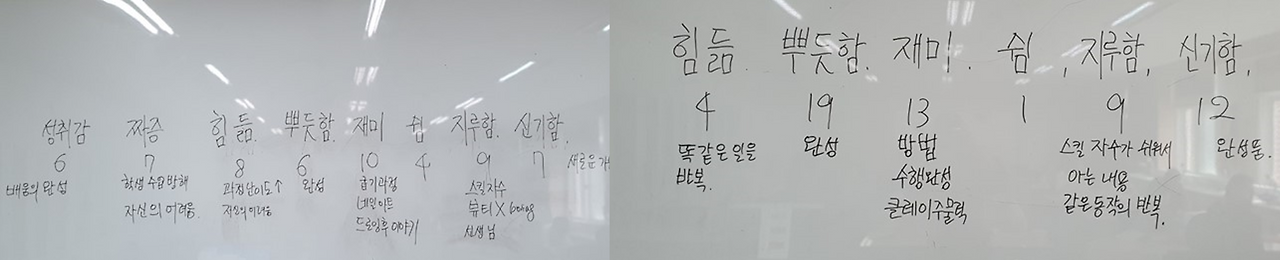 성취감 짜증 힘듦. 뿌듯함. 재미 쉼 지루함. 신기함.
6 7 8 6 10 4 9 7 새로운
배움의 완성 학생 수업 방해 과제 난이도↑ 완성 스킬자수
자신의 어려움. 자신의 어려움 네일아트 뷰티 X
드로잉후 이야기 선생님
힘듦. 뿌듯함. 재미. 쉼, 지루함, 신기함,
4 19 13 1 9 12
똑같은 일을 완성 방법 스킬 자수가 쉬워서 완성품.
반복. 수행완성 아는 내용
클레이주물럭 같은 동작의 반복.